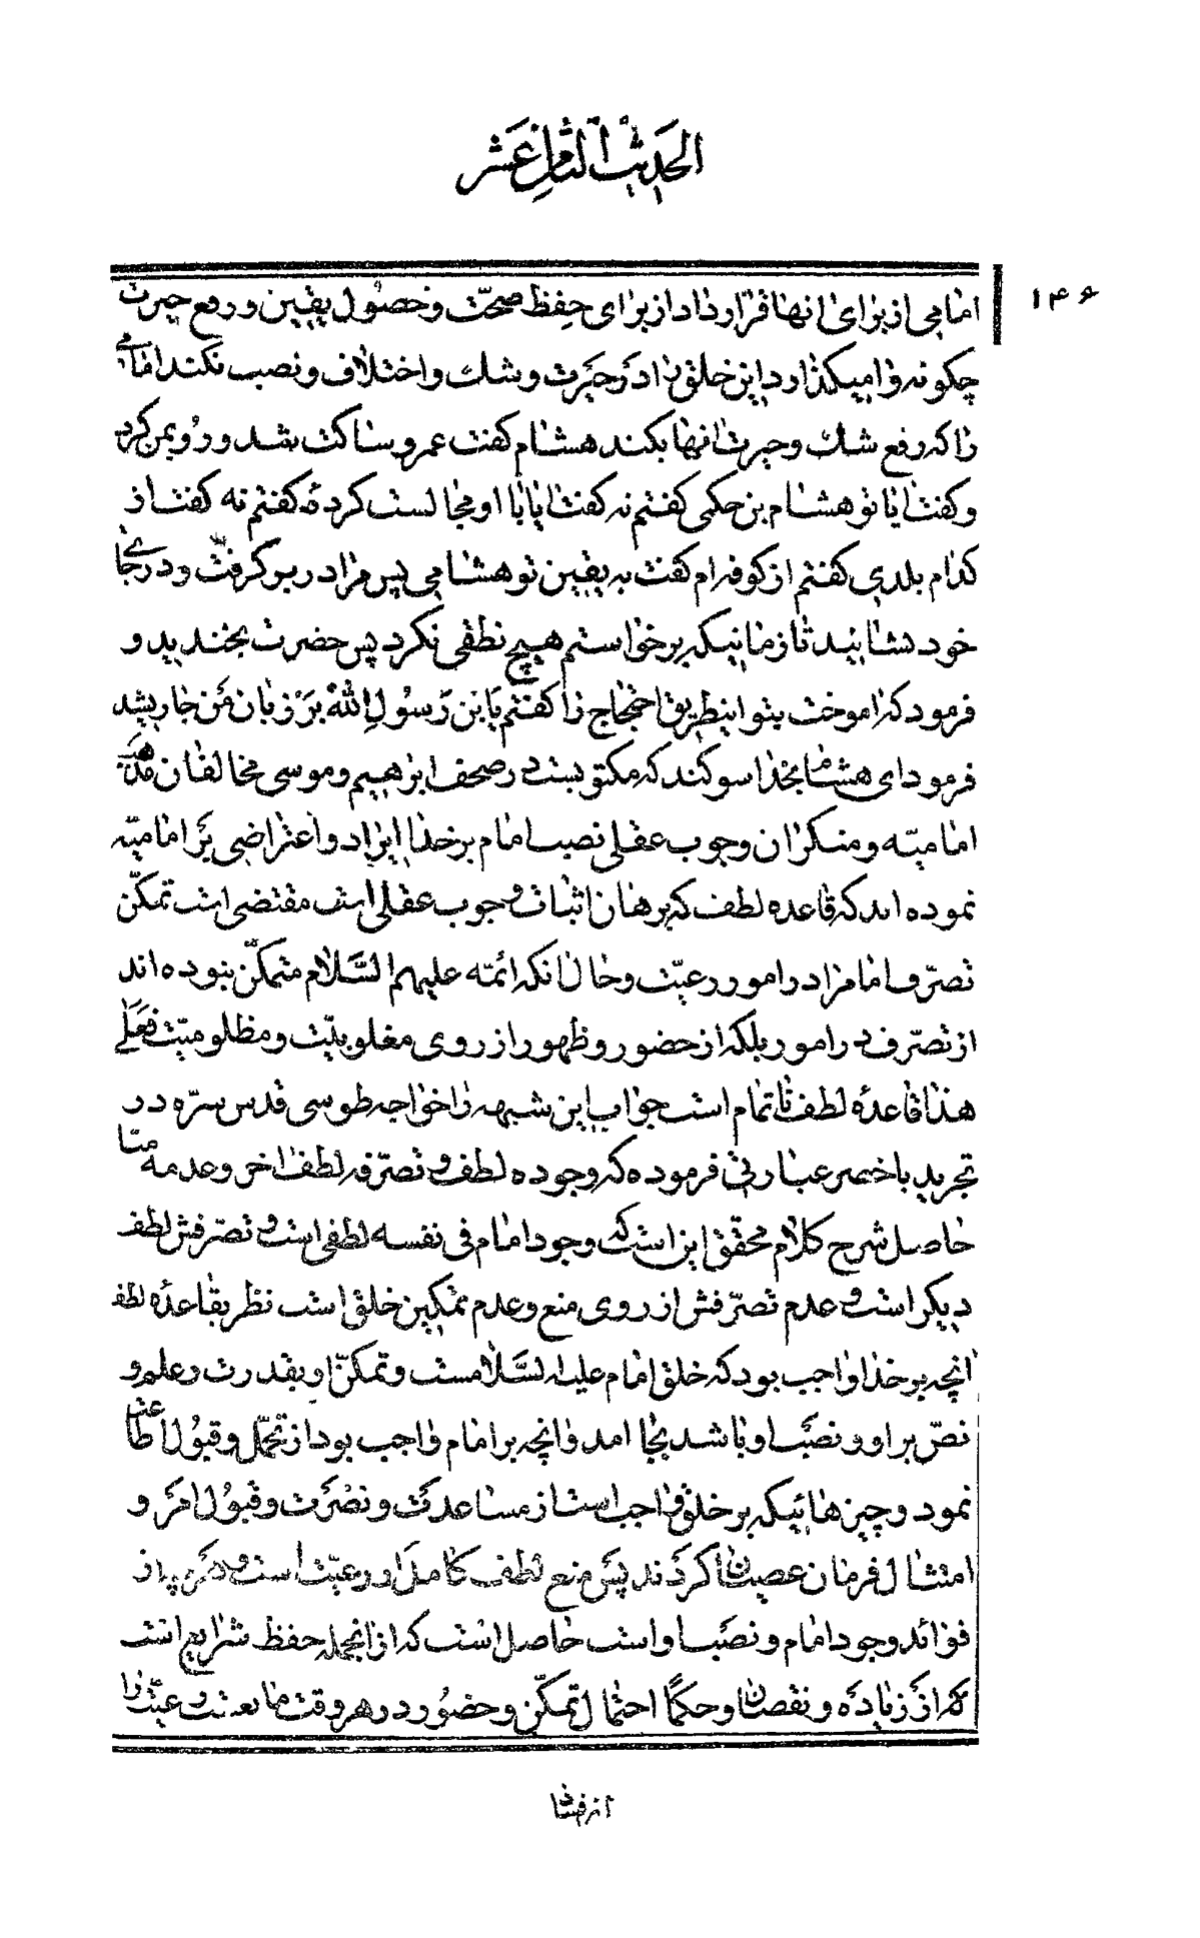 الحدیث الثامن عشر
۱۴۶
امامی از برای انها قرار داد از برای حفظ صحّت و حصول یقین و رفع حیرت
چکونه وا میکذارد این خلق را در حیرت و شك و اختلاف و نصب نکند امامی
را که رفع شك و حیرت انها بکند هشام کفت عمرو ساکت شد و رو بمن کرد
و کفت ایا تو هشام بن حکمی کفتم نه کفت ایا با او مجالست کردهٔ کفتم نه کفت از
کدام بلدی کفتم از کوفه ام کفت به یقین تو هشامی پس مرا در بر کرفت و در جای
خود نشانید تا زمانیکه برخواستم هیچ نطقی نکرد پس حضرت بخندید و
فرمود که اموخت بتو اینطریق احتجاج را کفتم یابن رسول الله بر زبان من جاریشد
فرمود ای هشام بخدا سوکند که مکتوبست در صحف ابرهیم و موسی مخالفان مذهب
امامیّه و منکران وجوب عقلی نصب امام بر خدا ایراد و اعتراضی بر امامیّه
نموده اند که قاعده لطف که برهان اثبات وجوب عقلی است مقتضی است تمکّن
تصرّف امام را در امور رعیّت و حال انکه ائمّه علیهم السّلام متمکّن نبوده اند
از تصرّف در امور بلکه از حضور و ظهور از روی مغلوبیّت و مظلومیّت فعلی
هذا قاعدهٔ لطف نا تمام است جواب این شبهه را خواجه طوسی قدس سرّه در
تجرید باخصر عبارتی فرموده که وجوده لطف و تصرّفه لطف اخر و عدمه منّا
حاصل شرح کلام محقّق این است که وجود امام فی نفسه لطفی است و تصرّفش لطف
دیکر است و عدم تصرّفش از روی منع و عدم تمکین خلق است نظر بقاعدهٔ لطف
انچه بر خدا واجب بود که خلق امام علیه السّلامست و تمکنّ او بقدرت و علم و
نصّ بر او و نصب او باشد بجا امد و انچه بر امام واجب بود از تحمّل و قبول اطاعت
نمود و چیزهائیکه بر خلق واجب است از مساعدت و نصرت و قبول امر و
امتثال فرمان عصیانا کردند پس منع لطف کامل از رعیّت است و هر یه از
فوائد وجود امام و نصب او است حاصل است که از انجمله حفظ شرایع است
که از زیاده و نقصان و حکمًا احتمال تمکّن و حضور در هر وقت مانعست رعیّت را
از فساد